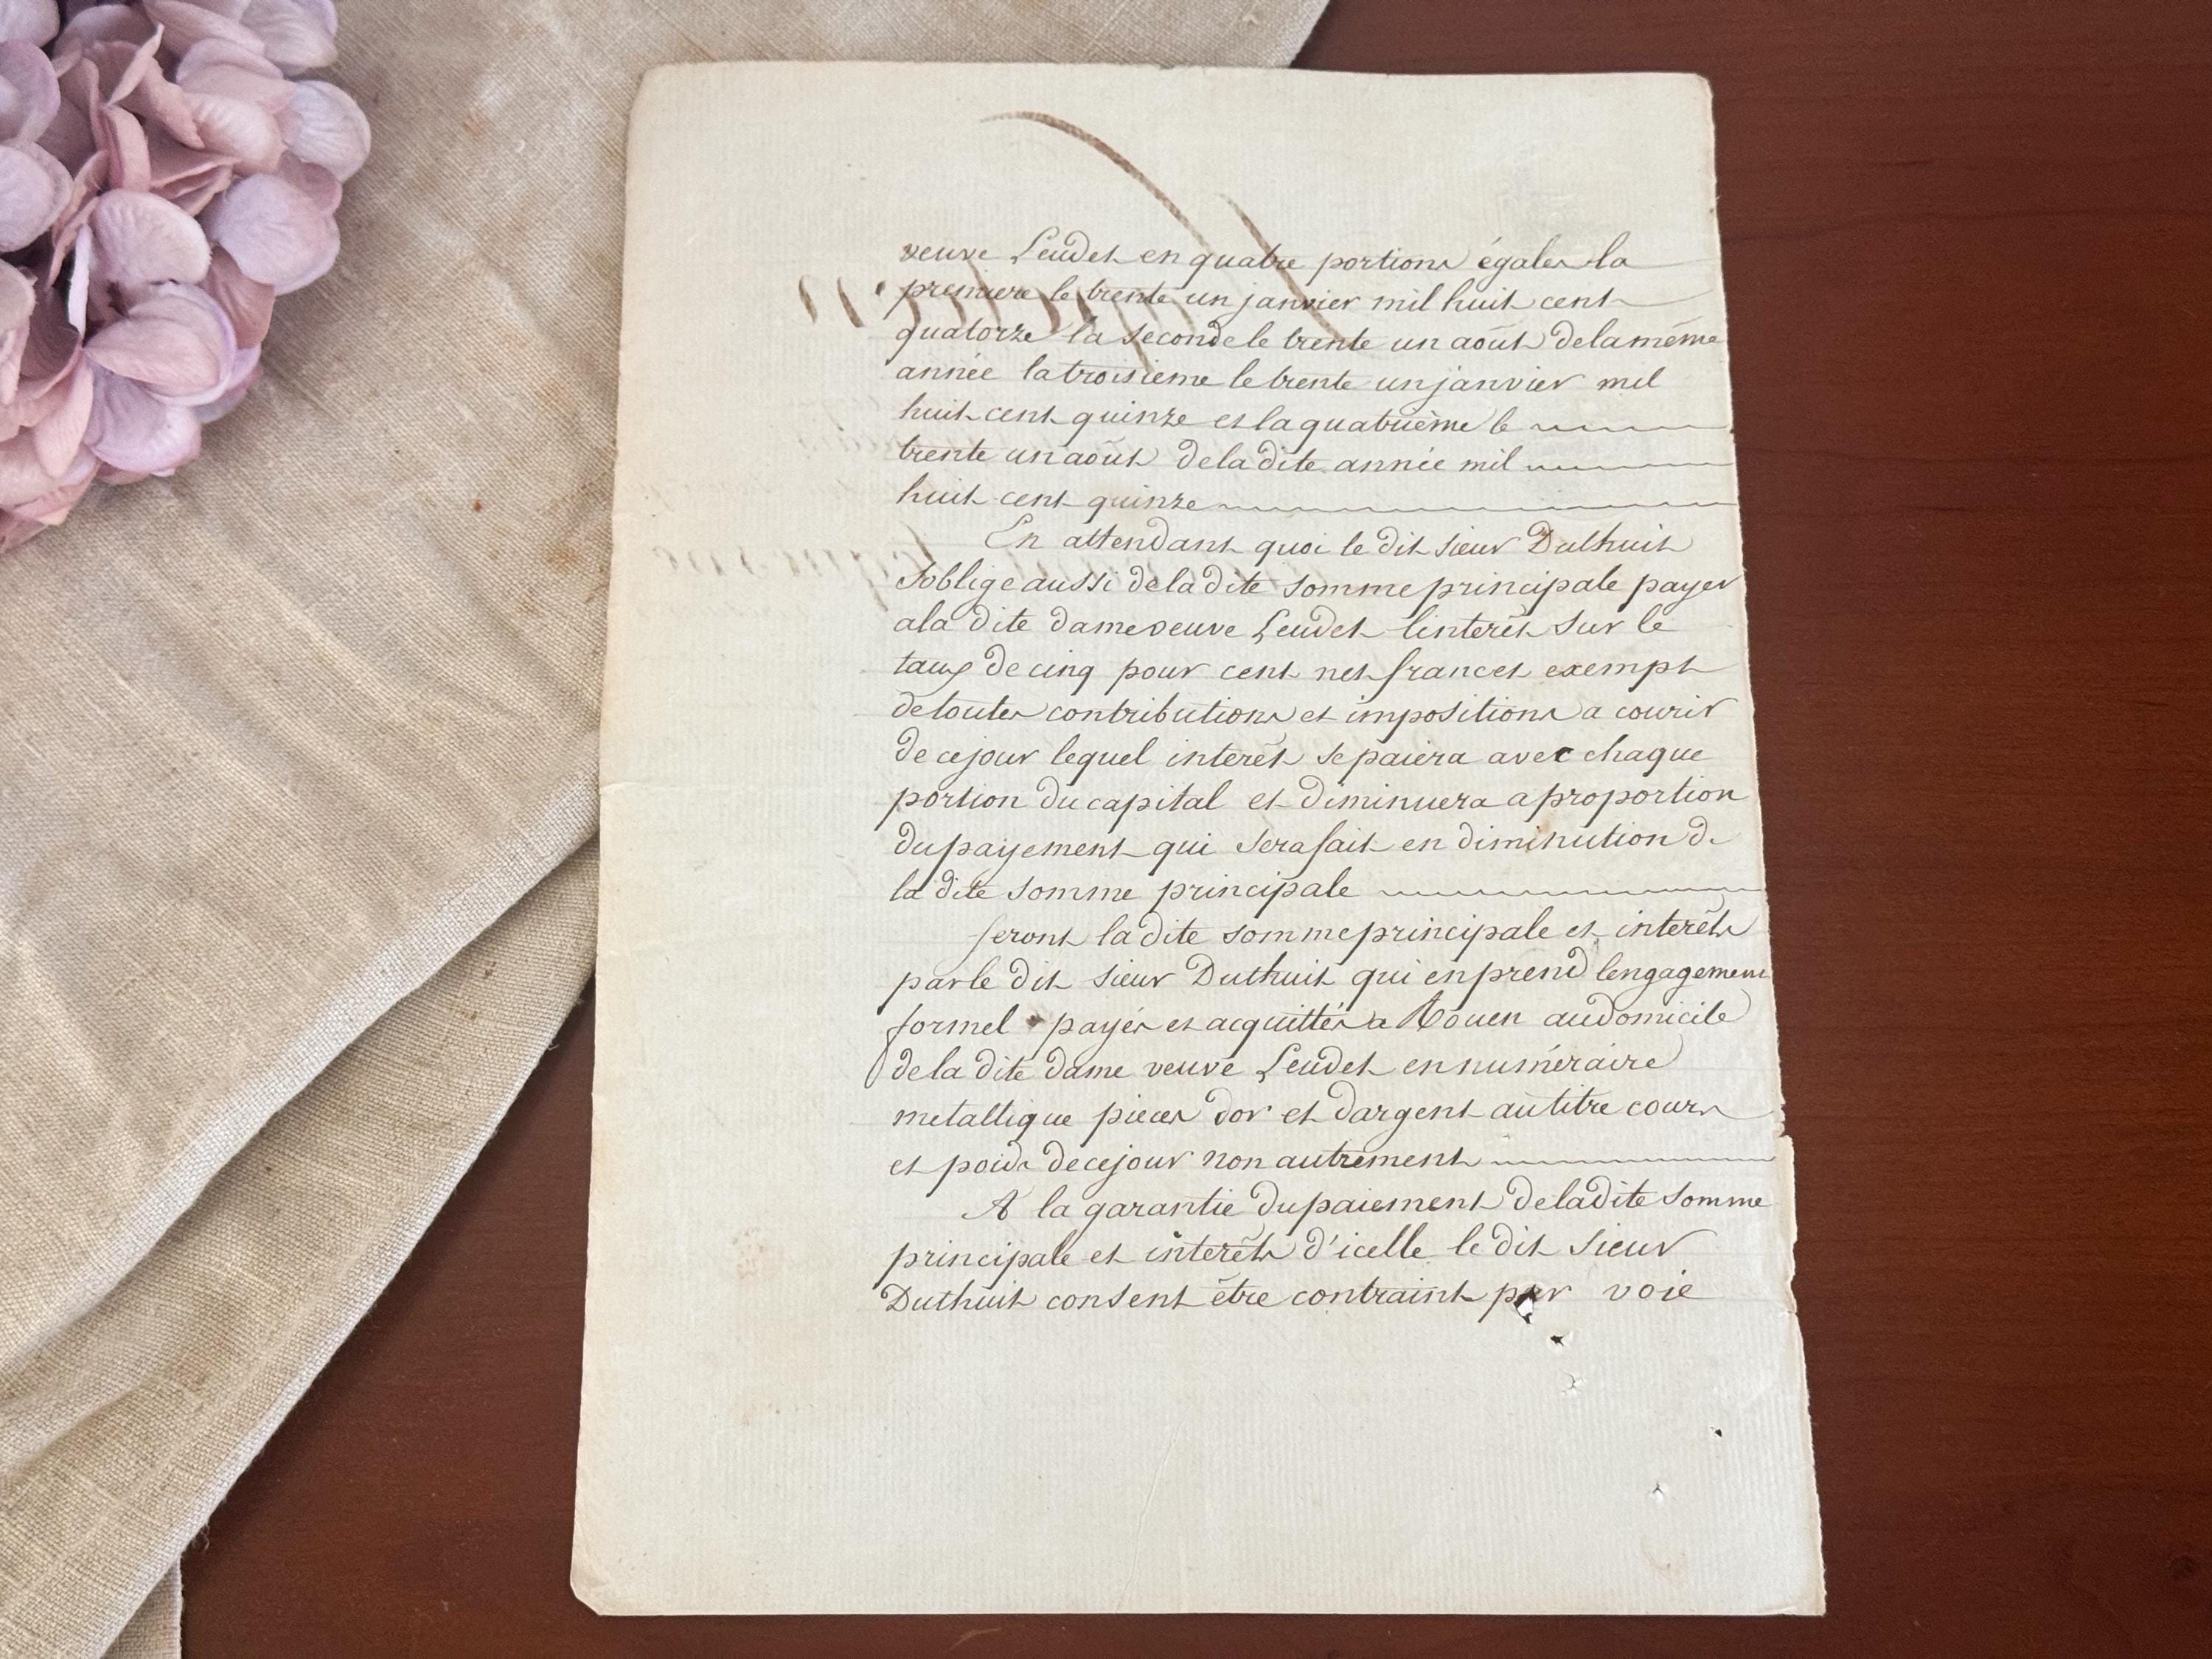 veuve Leudet en quatre portions égales la
premiere le trente un janvier mil huit cent
quatorze la seconde le trente un août de la même
année la troisieme le trente un janvier mil
huit cent quinze et la quatrième le
trente un août de la dite année mil
huit cent quinze
En attendant quoi le dit sieur Duthuit
s'oblige aussi de la dite somme principale payer
a la dite dame veuve Leudet l'interêt sur le
taux de cinq pour cent net francet exempt
de toutes contributions et impositions a courir
de ce jour lequel interêt se paiera avec chaque
portion du capital et diminuera a proportion
du payement qui sera fait en diminution de
la dite somme principale
seront la dite somme principale et interêts
par le dit sieur Duthuit qui en prend lengagement
formel payés et acquittés a Rouen au domicile
de la dite dame veuve Leudet en numéraire
metallique pieces dor et dargent au titre cours
et poids de ce jour non autrement
A la garantie du paiement de la dite somme
principale et interêts d'icelle le dit sieur
Duthuit consent être contraint par voie